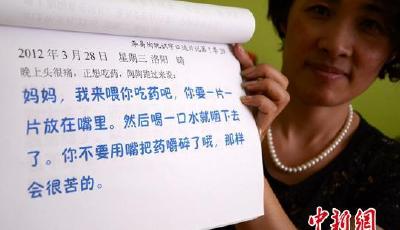 2012 年 3 月 28 日 星期三 洛阳 晴
晚上头很痛，正想吃药，陶陶跑过来说：
妈妈，我来喂你吃药吧，你要一片一
片放在嘴里。然后喝一口水就咽下去
了。你不要用嘴把药嚼碎了哦，那样
会很苦的。
中新网